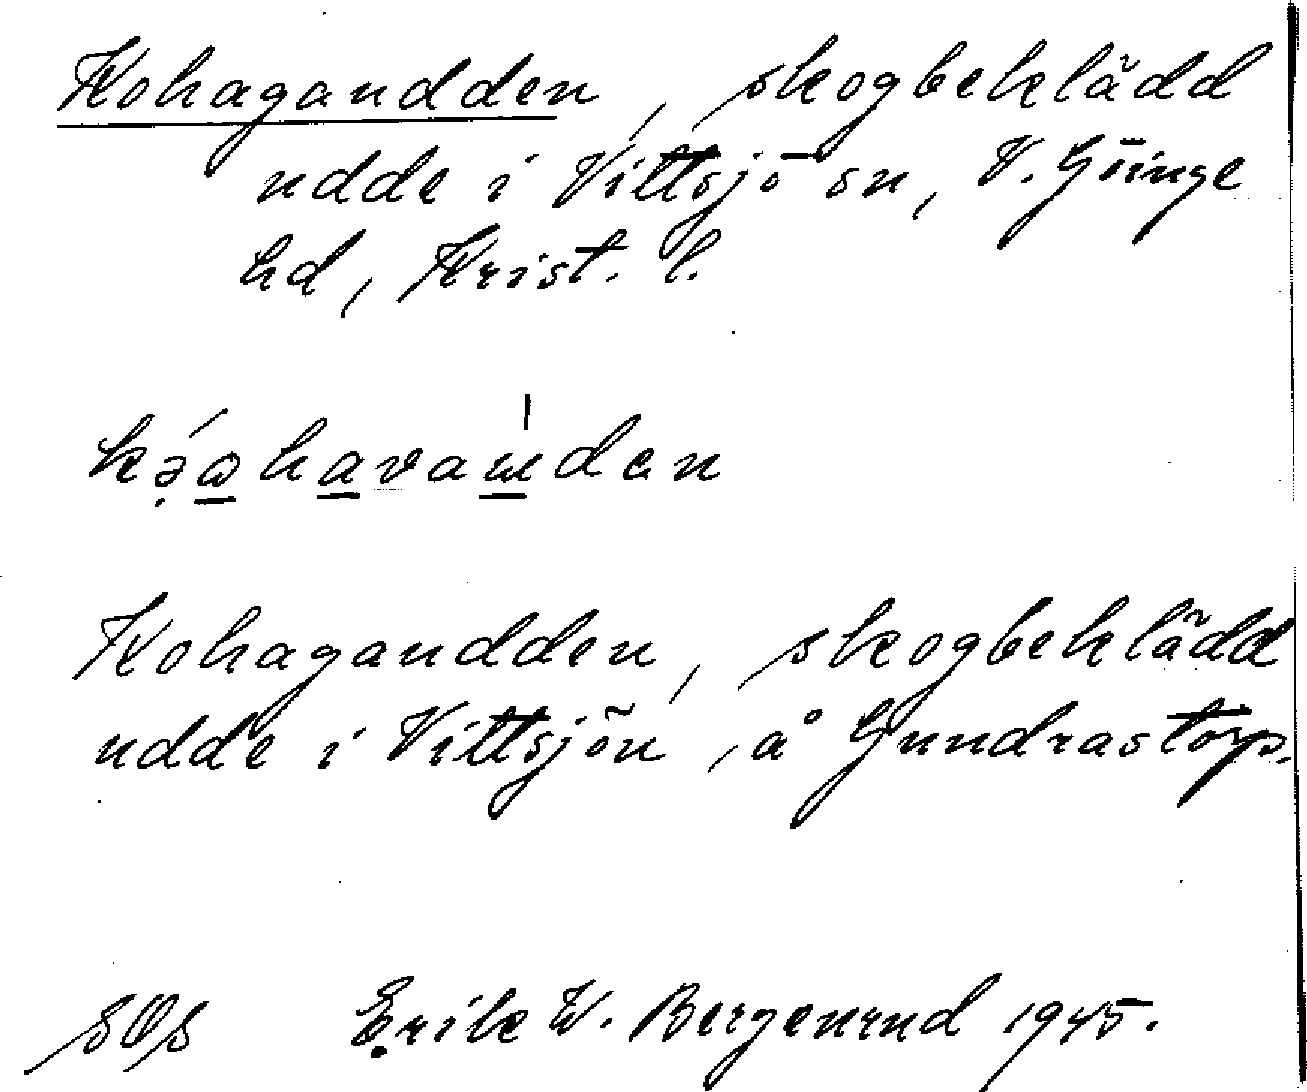 Kohagaudden, skogbeklädd
udde i Vittsjö sn, V. Göinge
hd, Krist. l.
Kohagaudden, skogbeklädd
udde i Vittsjön, å Gundrastorps.
Erik W. Bergenrud 1945.